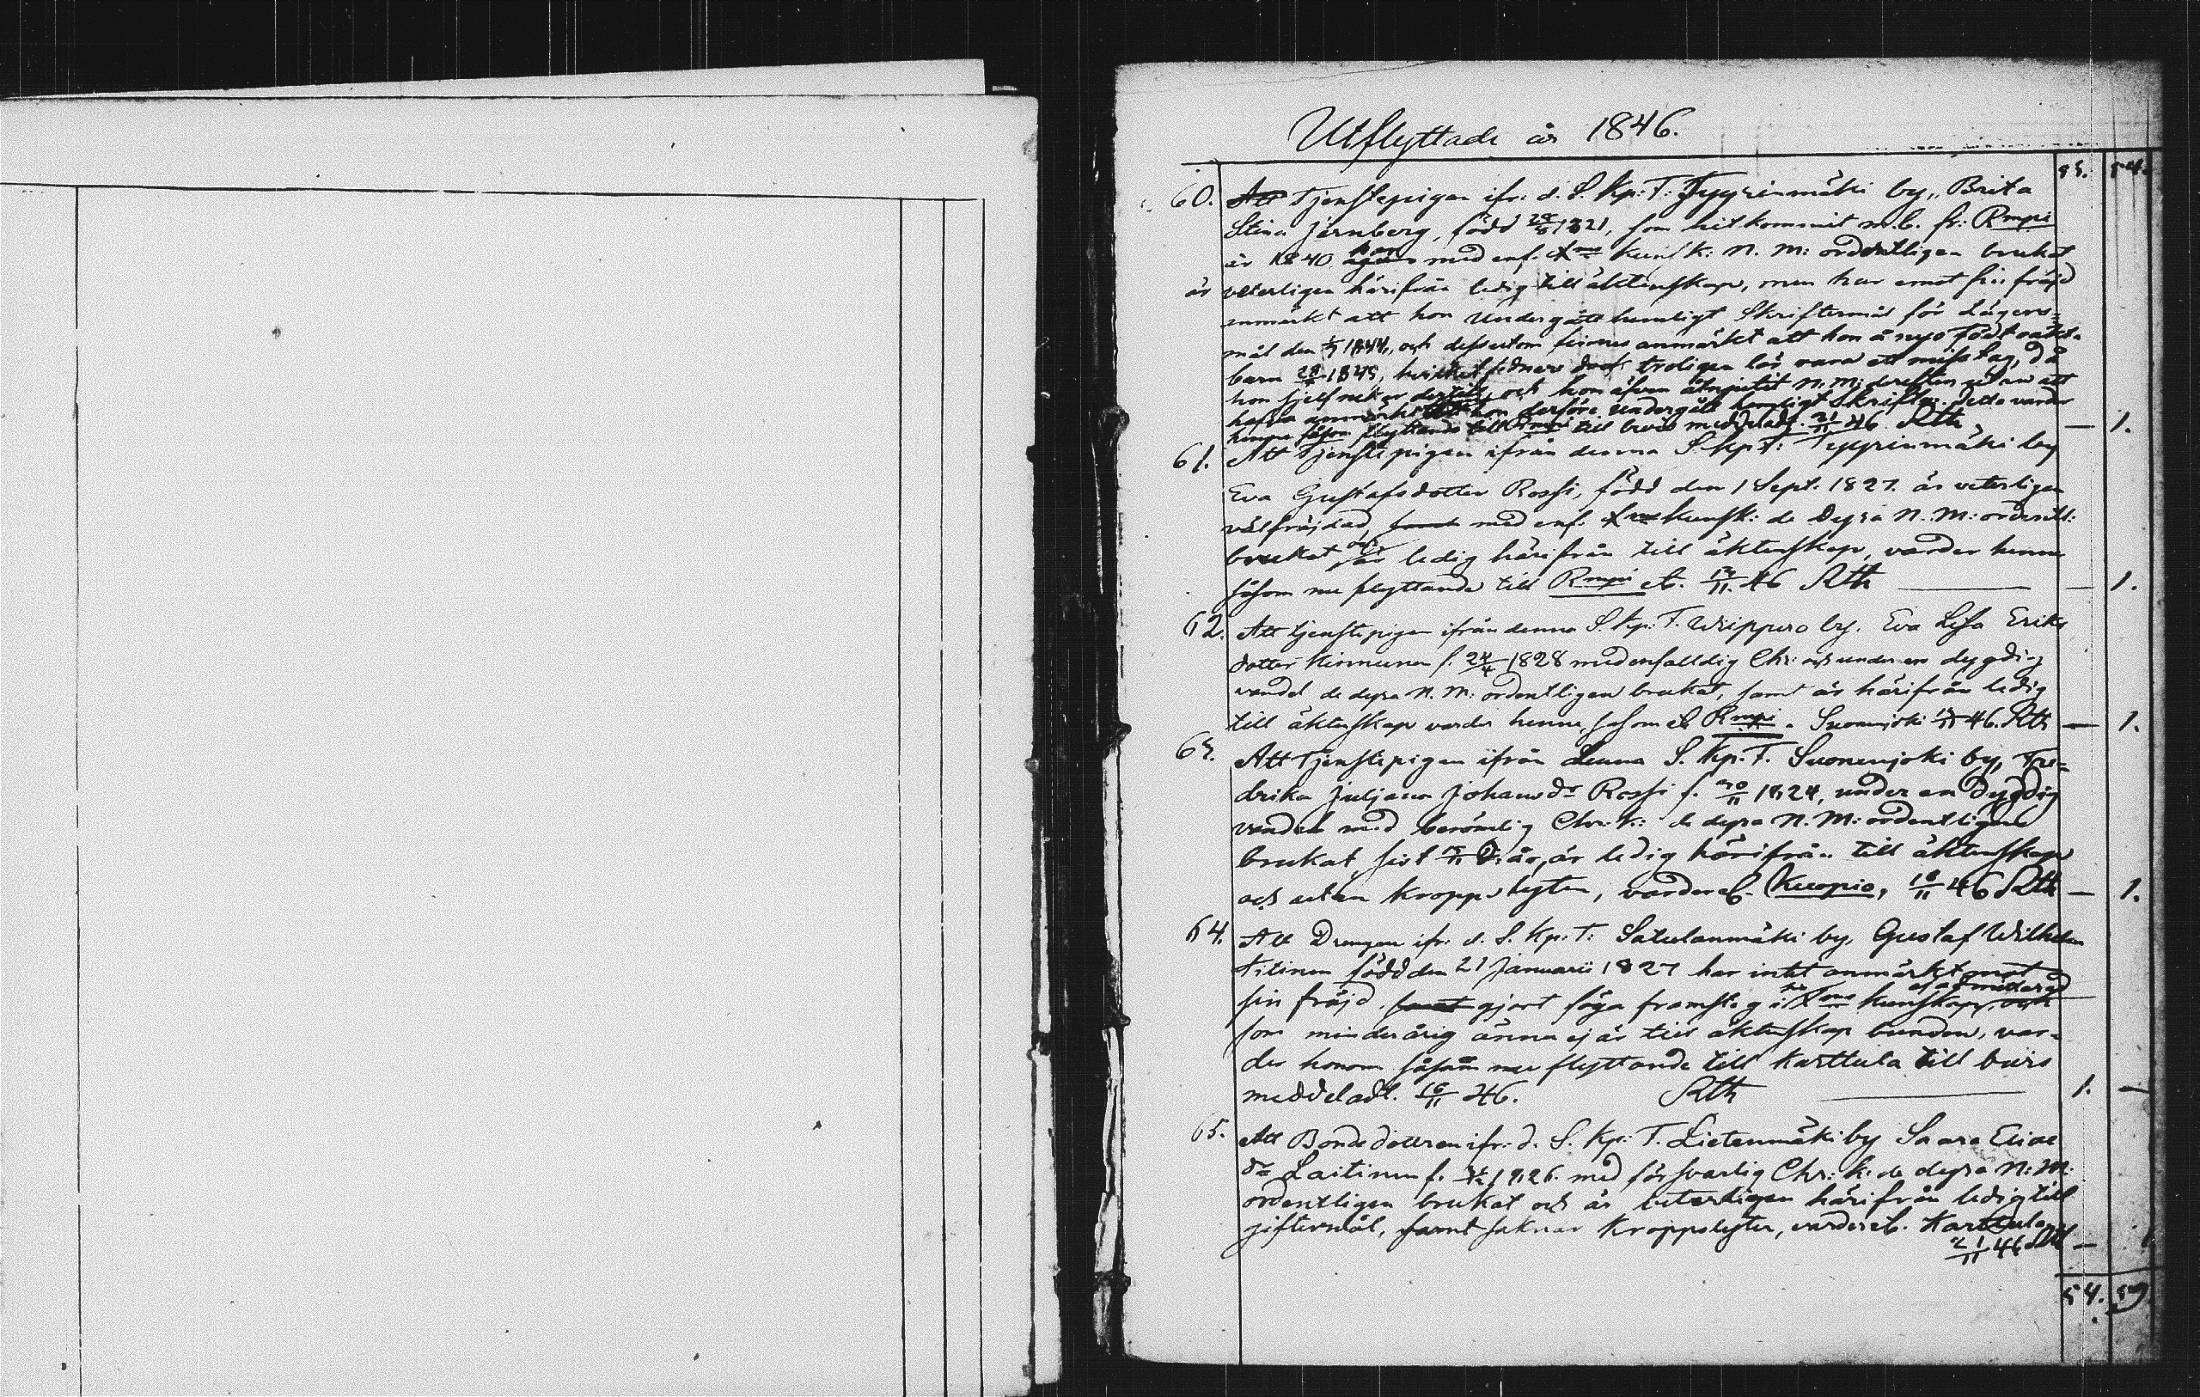 Utflyttade år 1846.
53. 54.
60. Att Tjenstepigan ifr. d. S. Kp: T: Tyyrinmäki by, Brita
Stina Jernberg, född 1821, som hitkommit m. b. fr: Rmpi
år 1840 med enf. Xna Kunsk: N. M: ordentligen brukat
är veterligen härifrån ledig till äktenskap, men har emot sin fräjd
anmärkt att hon undergått hemligt Skriftermål för Lägers-
mål den 1844, och dessutom finnes anmärkt att hon å nyo födt oäkta
barn 1845, hvilket sednare dock troligen lär vara ett misstag, då
hon sjelf nekar dertill, och hon äfven åtnjutit N. M: derefter utan att
hafva anmärkt hon derföre undergått hemligt skrifter. Detta varder
henne såsom flyttande till Rmpi till bevis meddeladt. 21/11 46 Rth — 1.
61. Att Tjenstepigan ifrån denna S. Kp. T: Tyyrinmäki by
Eva Gustafsdotter Rossi, född den 1 Sept. 1827. är veterligen
välfräjdad, samt med enf. Xna Kunsk: de Dyra N. M: ordentl:
brukat och är ledig härifrån till äktenskap, varder henne
såsom nu flyttande till Rmpi etc. 46 Rth — 1.
62. Att tjenstepigan ifrån denna S. Kp. T. Wäippero by. Eva Lisa Eriks
dotter Kinnunen f. 24/4 1828 med enfalldig Chr: och under en dygdig
vandel de dyra N. M: ordentligen brukat, samt är härifrån ledig
till äktenskap varder henne, såsom Rmpi. Suonenjoki 46. Rth — 1.
63. Att Tjenstepigan ifrån denna S. Kp. T. Suonenjoki by, Fre-
drika Juljana Johansdr Rossi f. 1824, under en Dygdig
vandel med berömlig Chr. k: de dyra N. M: ordentligen
brukat, sist är ledig härifrån till äktenskap
och utan kroppslyten, varder etc. Kuopio, 18/11 46 Rth — 1.
64. Att Drengen ifr. d. S. Kp: T: Satulanmäki by, Gustaf Wilhelm
Titinen född den 21 Januarii 1827 har intet anmärkt mot
sin fräjd, samt gjort föga framsteg i Xna kunskap, och
som minderårig ännu ej är till äktenskap bunden, var-
der honom såsom nu flyttande till Karttula till bevis
meddeladt. 46. Rth 1. —
65. Att Bondedottren ifr. d. S. Kp: T. Lietenmäki by Saara Elias
dr Laitinen f. 1826. med försvarlig Chr. k. de dyra N: M:
ordentligen brukat och är veterligen härifrån ledig till
giftermål, samt saknar Kroppslyten, varder etc. Karttula
21/11 46 Rth — 1
54. 59